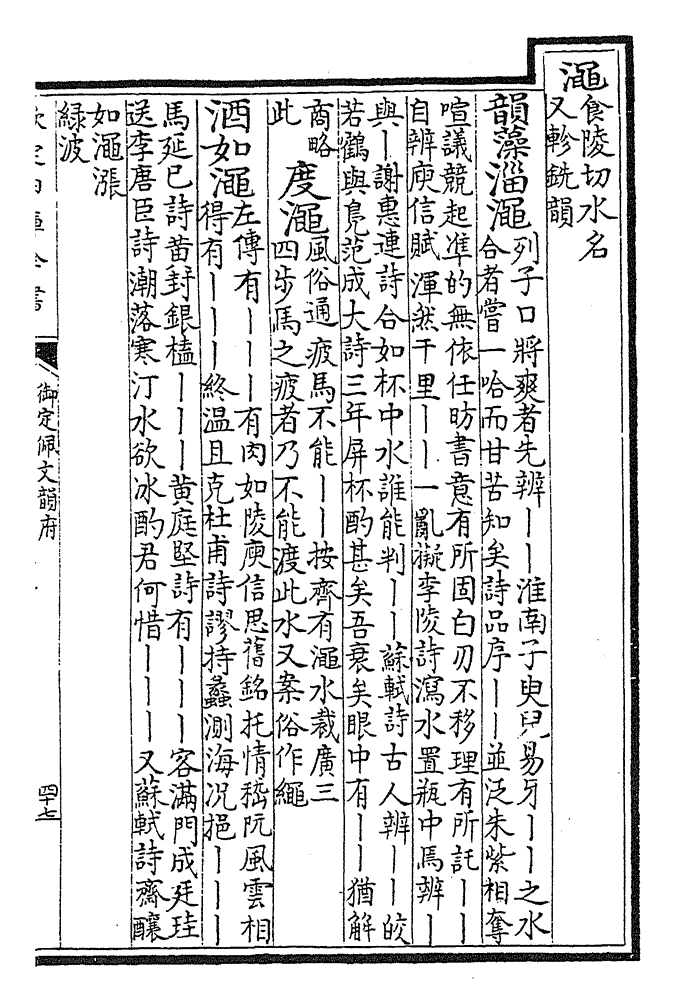 澠食陵切水名
又軫銑韻
韻藻淄澠列子口將爽者先辨｜｜淮南子臾兒易牙｜｜之水
合者嘗一哈而甘苦知矣詩品序｜｜並泛朱紫相奪
喧議競起凖的無依任昉書意有所固白刃不移理有所託｜｜
自辨庾信賦渾然千里｜｜一亂擬李陵詩瀉水置瓶中焉辨｜
與｜謝惠連詩合如杯中水誰能判｜｜蘇軾詩古人辨｜｜皎
若鶴與鳧范成大詩三年屏杯酌甚矣吾衰矣眼中有｜｜猶解
商略
此
度澠風俗通疲馬不能｜｜按齊有澠水裁廣三
四步馬之疲者乃不能渡此水又案俗作繩
酒如澠左傳有｜｜｜有肉如陵庾信思舊銘托情嵇阮風雲相
得有｜｜｜終温且克杜甫詩謬持蠡測海况挹｜｜｜
馬延巳詩黄封銀榼｜｜｜黄庭堅詩有｜｜｜客滿門成廷珪
送李唐臣詩潮落寒汀水欲冰酌君何惜｜｜｜又蘇軾詩齋釀
如澠漲
緑波
欽定四庫全書
御定佩文韻府
四十七